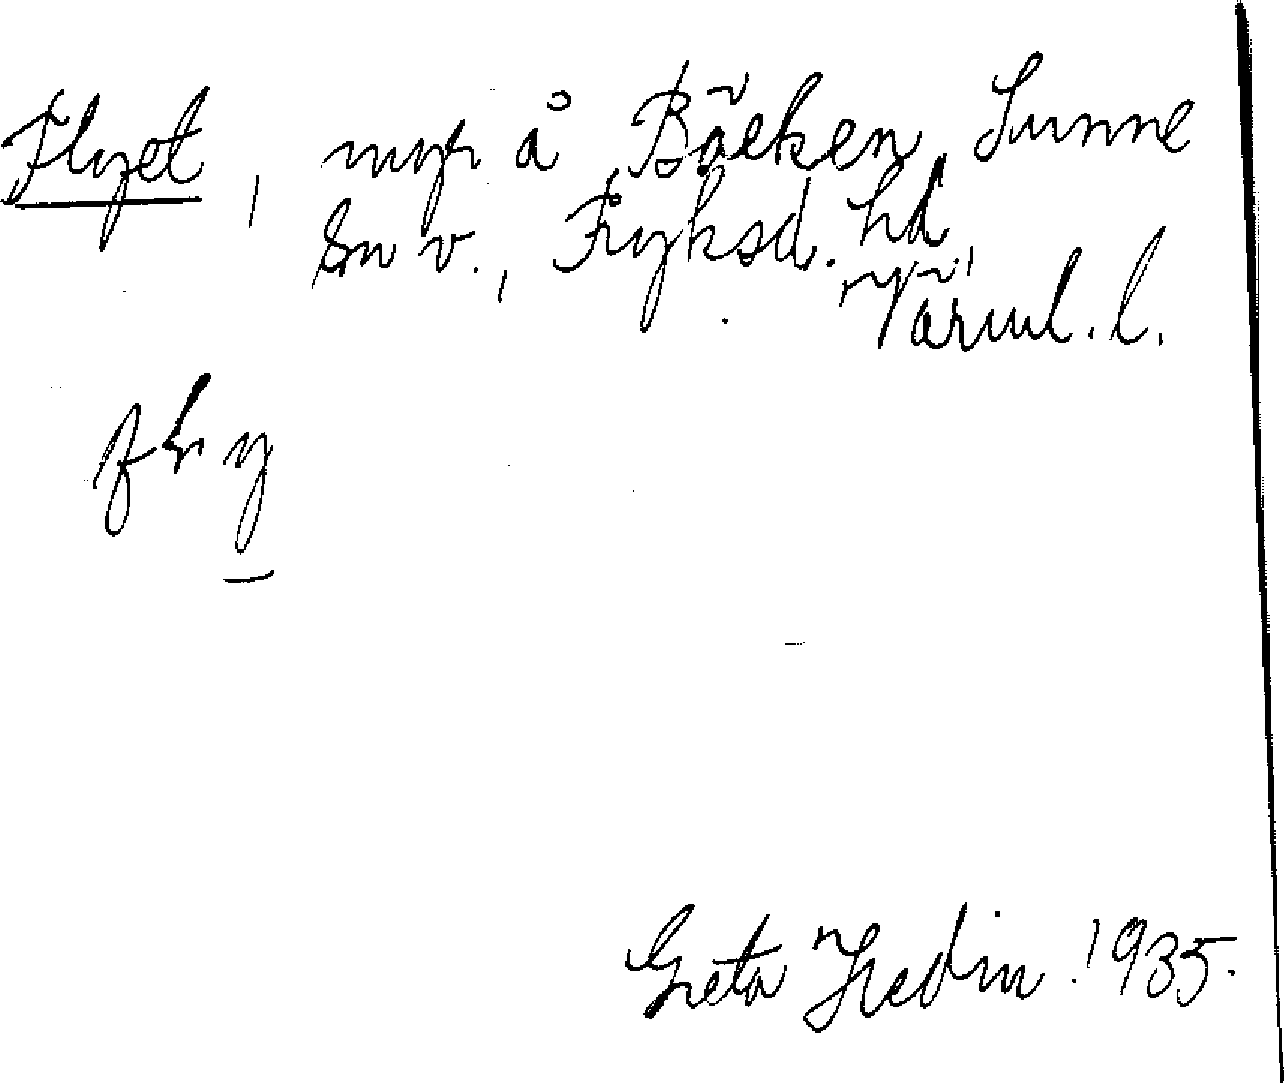 Flyet, myr å Bäcken, Sunne
sn v., Fryksd. hd,
Värml. l.
fly
Greta Hedin. 1935.